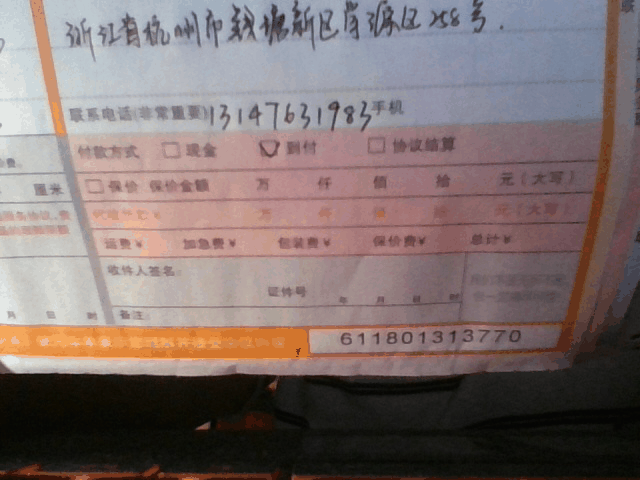 浙江省杭州市钱塘新区岸源区258号.
联系电话(非常重要)13147631983手机
付款方式 现金 到付 协议结算
厘米 保价 保价金额 万 仟 佰 拾 元(大写)
万 仟 佰 拾 元(大写)
运费¥ 加急费¥ 包装费¥ 保价费¥ 总计¥
收件人签名:
证件号 年 月 日 时
月 日 时 备注:
611801313770